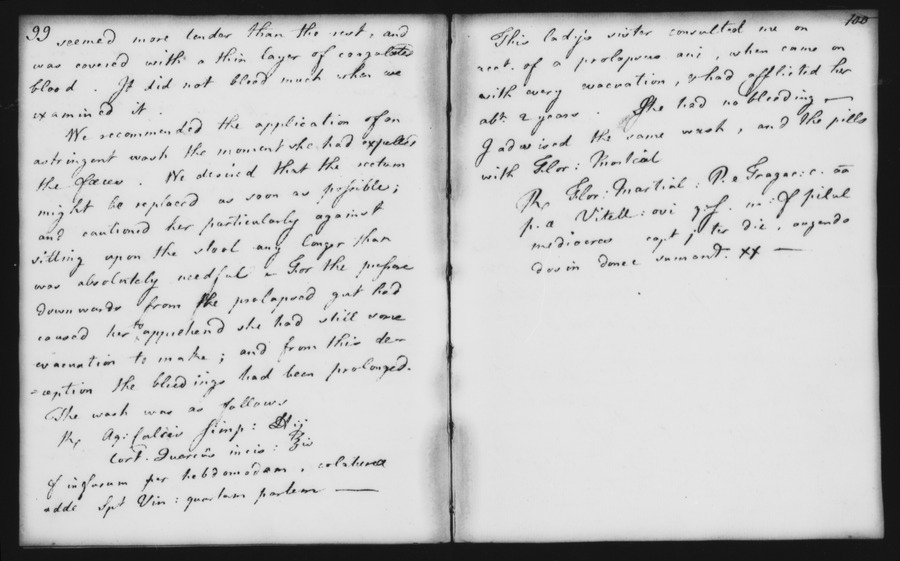 99
seemed more tender than the rest; and
was covered with a thin layer of coagulated
blood. It did not bleed much when we
examined it.
We recommended the application of an
astringent wash the moment she had expelled
the fæces. We desired that the rectum
might be replaced as soon as possible;
and cautioned her particularly against
sitting upon the stool any longer than
was absolutely needful - for the pressure
downwards from the prolapsed gut had
caused her to apprehend she had still some
evacuation to make; and from this de-
=ception the bleedings had been prolonged.
The wash was as follows
Rx Aq: Calcis simp: ℔ij
Cort. Quercûs incis: ℥iv
f infusum per hebdomadam, colaturæ
adde Spt Vin: quartam partem —
100
This lady's sister consulted me on
acct. of a prolapsus ani, when came on
with every evacuation, & had afflicted her
abt. 2 years. She had no bleeding —
I advised the same wash, and the pills
with Flor: Martial
Rx Flor: Martial: P. e Tragac: c. āā
p.æ Vitell: ovi q.s. ut f pilul
mediocres capt j ter die, augendo
dosin donec sumand. xx —